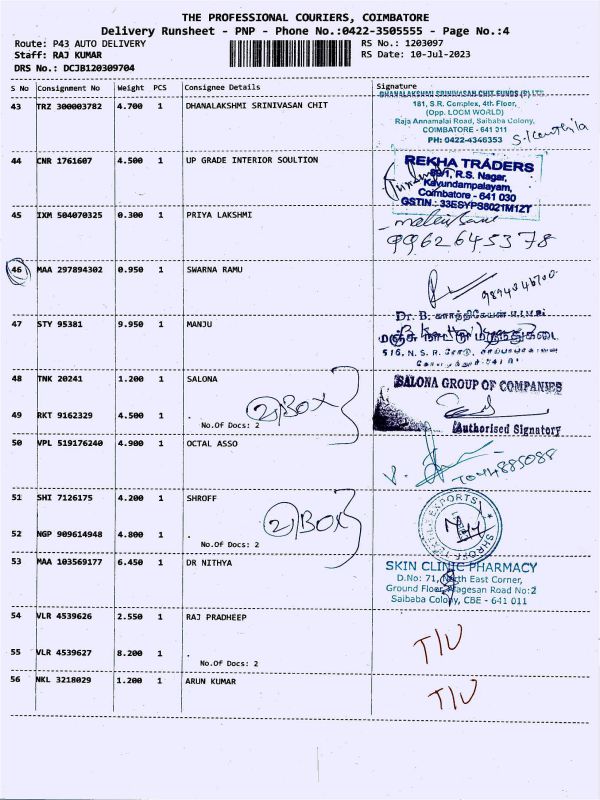 THE PROFESSIONAL COURIERS, COIMBATORE
Delivery Runsheet - PNP - Phone No.:0422-3505555 - Page No.:4
Route: P43 AUTO DELIVERY
RS No.: 1203097
Staff: RAJ KUMAR
RS Date: 10-Jul-2023
DRS No.: DCJB120309704
S No Consignment No Weight PCS Consignee Details Signature
DHANALAKSHMI SRINIVASAN CHIT FUNDS (P) LTD
43 TRZ 300003782 4.700 1 DHANALAKSHMI SRINIVASAN CHIT
181, S.R. Complex, 4th Floor,
(Opp. LOCM WORLD)
Raja Annamalai Road, Saibaba Colony,
COIMBATORE - 641 011
PH: 0422-4346353
44 CNR 1761607 4.500 1 UP GRADE INTERIOR SOULTION
REKHA TRADERS
89/1, R.S. Nagar,
Kavundampalayam,
Coimbatore - 641 030
GSTIN.: 33ESYPS8021M1ZT
45 IXM 504070325 0.300 1 PRIYA LAKSHMI
9962645378
46 MAA 297894302 0.950 1 SWARNA RAMU
47 STY 95381 9.950 1 MANJU
Dr. B. கார்த்திகேயன்
516, N. S. R. ரோடு,
48 TNK 20241 1.200 1 SALONA
SALONA GROUP OF COMPANIES
2) BOX
49 RKT 9162329 4.500 1 .
No.Of Docs: 2
Authorised Signatory
50 VPL 519176240 4.900 1 OCTAL ASSO
51 SHI 7126175 4.200 1 SHROFF
2) BOX
52 NGP 909614948 4.800 1 .
No.Of Docs: 2
53 MAA 103569177 6.450 1 DR NITHYA
SKIN CLINIC PHARMACY
D.No: 71, North East Corner,
Ground Floor, Alagesan Road No:2
Saibaba Colony, CBE - 641 011
54 VLR 4539626 2.550 1 RAJ PRADHEEP
T/U
55 VLR 4539627 8.200 1 .
No.Of Docs: 2
56 NKL 3218029 1.200 1 ARUN KUMAR
T/U